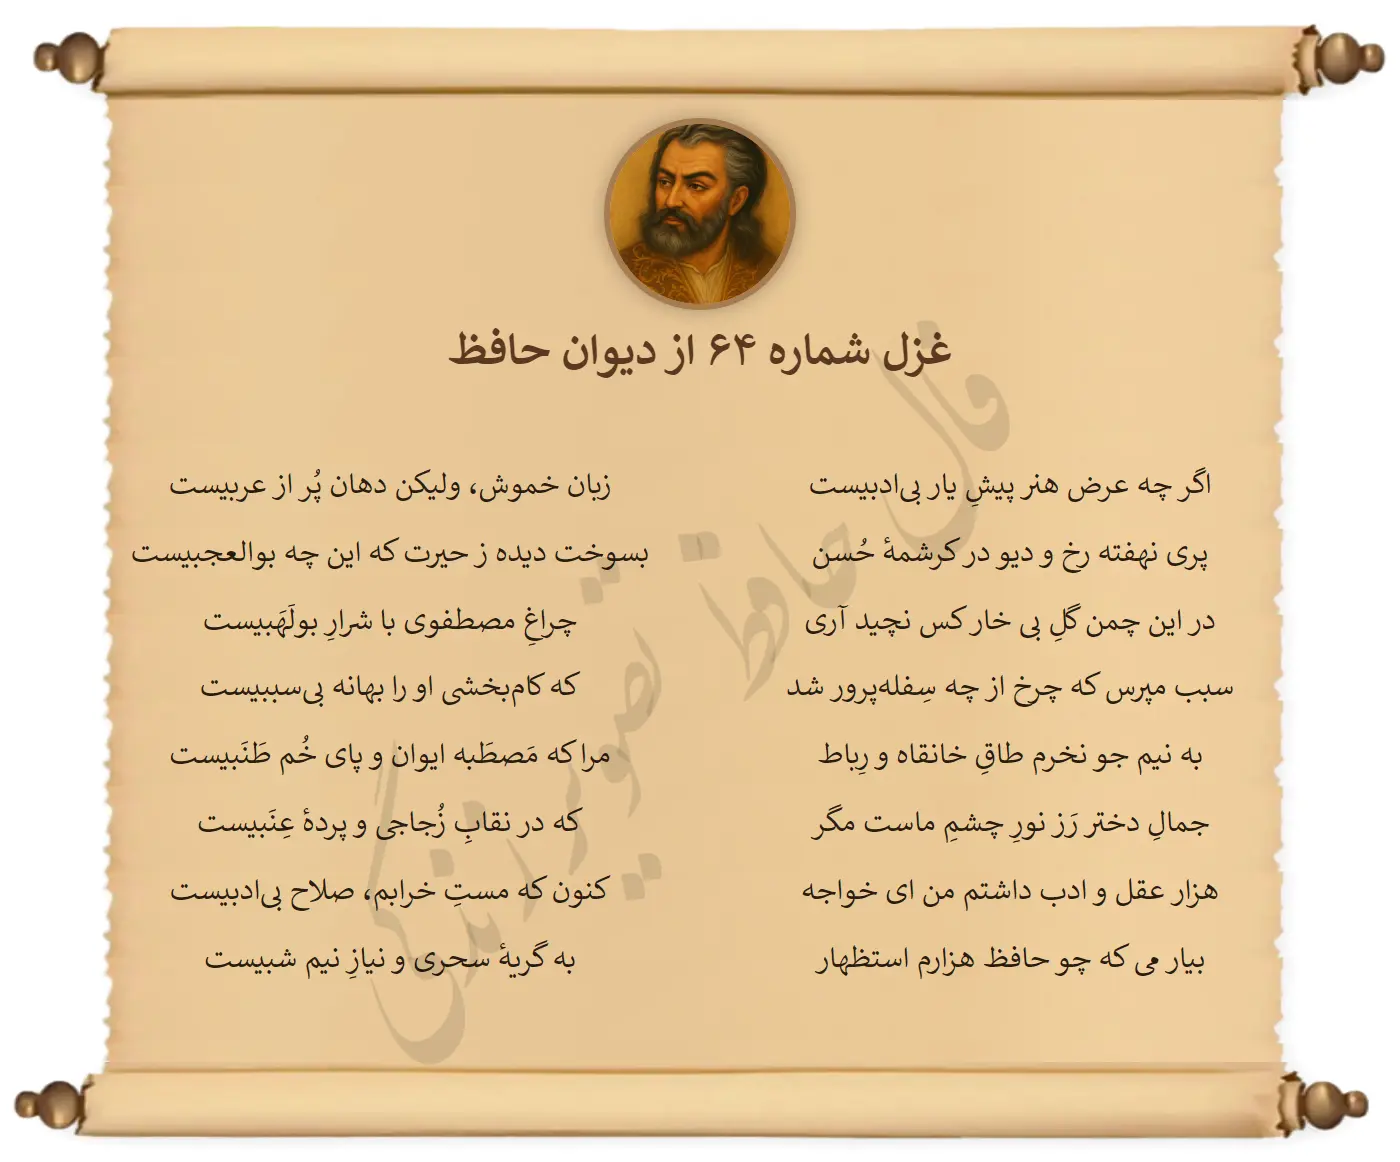 غزل شماره ۶۴ از دیوان حافظ
اگر چه عرض هنر پیشِ یار بی‌ادبیست
زبان خموش، ولیکن دهان پُر از عربیست
پری نهفته رخ و دیو در کرشمهٔ حُسن
بسوخت دیده ز حیرت که این چه بوالعجبیست
در این چمن گلِ بی خار کس نچید آری
چراغِ مصطفوی با شرارِ بولَهَبیست
سبب مپرس که چرخ از چه سِفله‌پرور شد
که کام‌بخشی او را بهانه بی‌سببیست
به نیم جو نخرم طاقِ خانقاه و رِباط
مرا که مَصطَبه ایوان و پای خُم طَنَبیست
جمالِ دختر رَز نورِ چشمِ ماست مگر
که در نقابِ زُجاجی و پردهٔ عِنَبیست
هزار عقل و ادب داشتم من ای خواجه
کنون که مستِ خرابم، صلاح بی‌ادبیست
بیار می که چو حافظ هزارم استظهار
به گریهٔ سحری و نیازِ نیم شبیست
فال حافظ تصویر زندگی